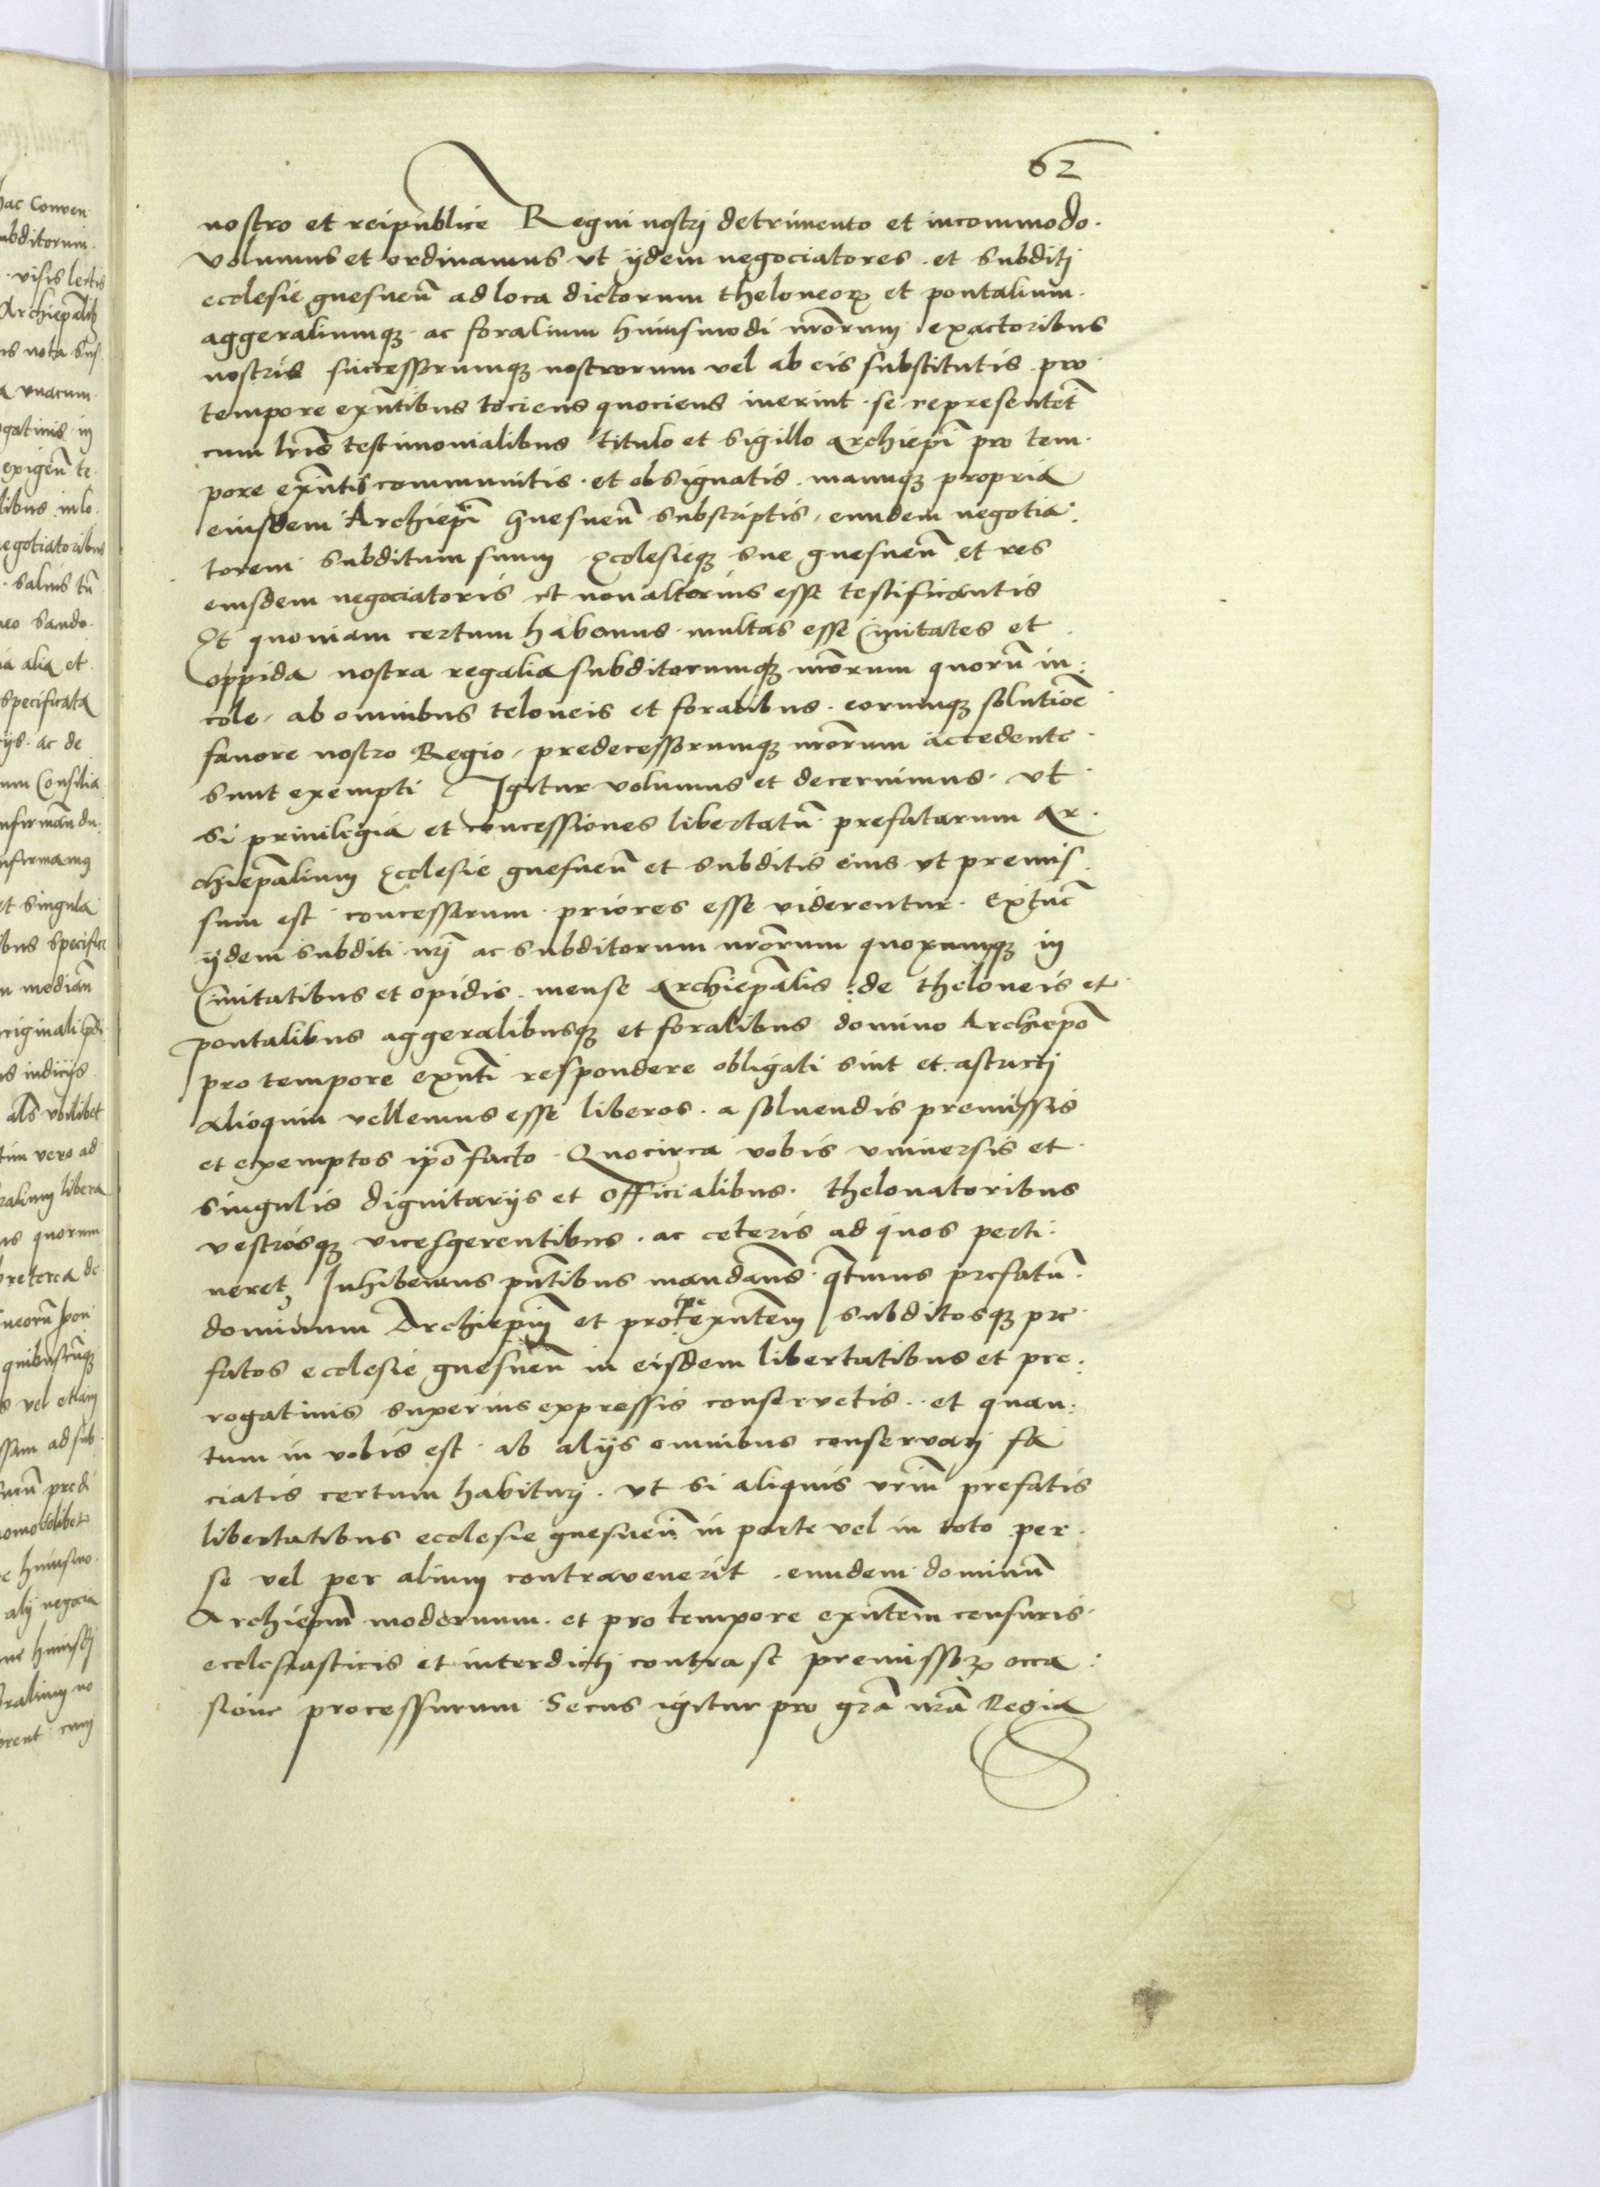 62
nostro et reipublice Regni nostrj detrimento et incommodo.
volumus et ordinamus vt ijdem negociatores. et subditj
ecclesie gnesneñ ad loca dictorum theloneoꝝ et pontalium.
aggeraliumqꝫ ac foralium huiusmodi nr̃orum exactoribus
nostris successorumqꝫ nostrorum vel ab eis substitutis pro
tempore exñtibus tociens quociens ierint. se representēt
cum lr̃is testimonialibus titulo et sigillo archiepĩ pro tem.
pore exñtis communitis. et obsignatis. manuqꝫ propria
eiusdem Archiepĩ Gnesneñ subscriptis, eundem negotia:
torem subditum suum ecclesieqꝫ sue gnesneñ et res
eiusdem negociatoris et non alterius esse testificantis
Et quoniam certum habemus. multas esse Ciuitates et
oppida nostra regalia subditorumqꝫ nr̃orum quorũ in:
cole, ab omnibus teloneis et foralibus. eorumqꝫ solutiõe
fauore nostro Regio, predecessorumqꝫ nr̃orum accedente
sunt exempti Igitur volumus et decernimus. vt
si priuilegia et concessiones libertatũ prefatarum Ar.
chiep̃alium Ecclesie gnesneñ et subditis eius vt premis.
sum est concessarum. priores esse viderentur. extũc
ijdem subditi nr̃j ac subditorum nr̃orum quorumqꝫ in
Ciuitatibus et opidis. mense Archiep̃alis: de theloneis et
pontalibus aggeralibusqꝫ et foralibus domino Archiep̃o
pro tempore exñti respondere obligati sint et astrictj
alioquin vellemus esse liberos. a soluendis premissis
et exemptos ip̃o facto. Quocirca vobis vniuersis et
singulis dignitarijs et Officialibus. thelonatoribus
vestrosqꝫ vicesgerentibus. ac ceteris ad quos perti.
neret Inhibemus pñtibus mandañs. q̃tenus prefatũ.
dominum Archiep̃m et pro tpe exñtem subditosqꝫ pre
fatos ecclesie gnesneñ in eisdem libertatibus et pre:
rogatiuis superius expressis conseruetis. et quan:
tum in vobis est ab alijs omnibus conseruarj fa
ciatis certum habiturj. vt si aliquis vr̃m prefatis
libertatibus ecclesie gnesneñ in parte vel in toto per.
se vel per alium contrauenerit. eundem dominũ
Archiep̃m modernum. et pro tempore exñtem censuris.
ecclesiasticis et interdictj contra se premissoꝝ occa:
sione processurum Secus igitur pro gr̃a nr̃a Regia